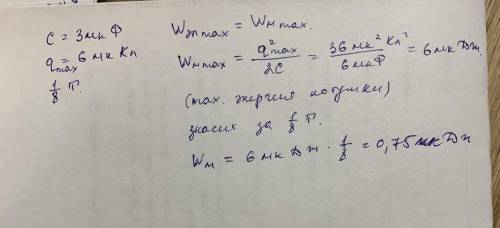 C = 3 мк Ф
q max = 6 мк Кл
1/8 T.
Wэл max = Wм max.
Wм max = q²max / 2C = 36 мк² Кл² / 6 мк Ф = 6 мк Дж.
(max. энергия катушки)
значит за 1/8 T.
Wм = 6 мк Дж · 1/8 = 0,75 мк Дж